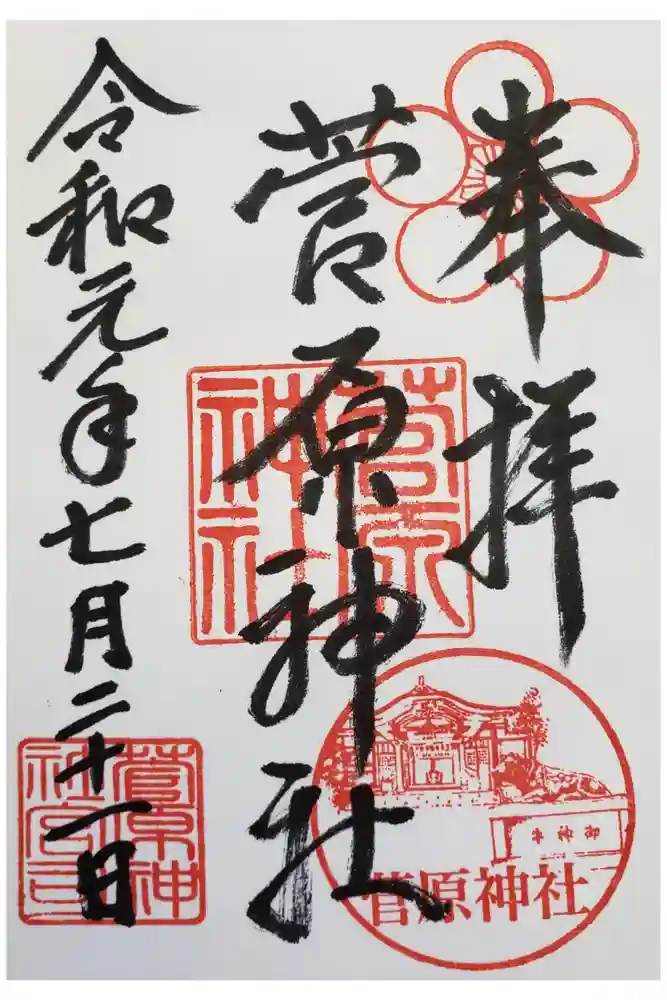 奉拝
菅原神社
令和元年七月二十一日
菅原神社
御神牛
菅原神社
菅原神社宮司